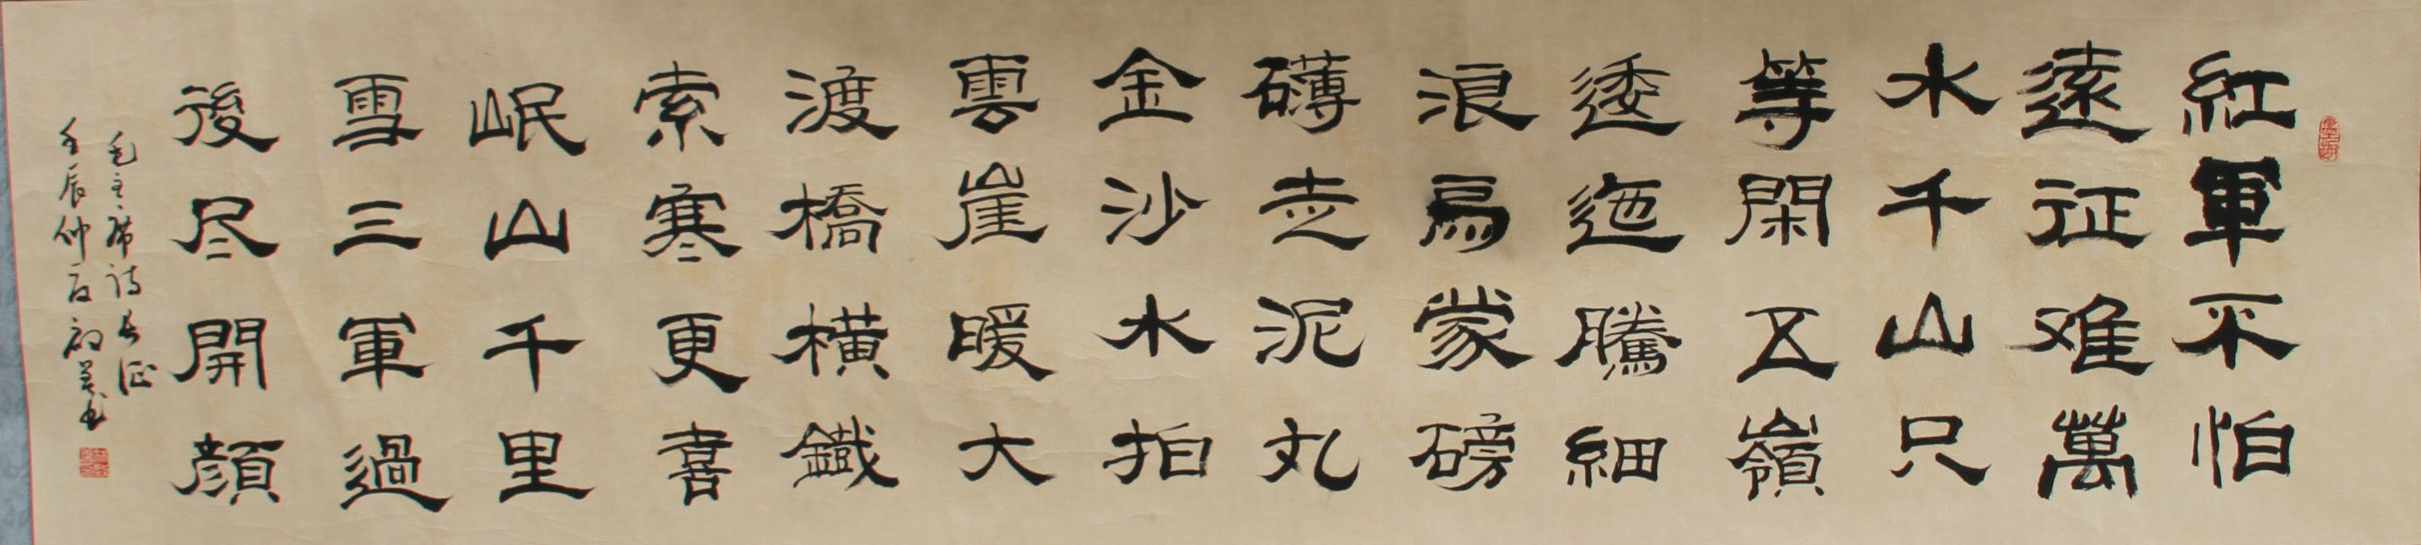 紅軍不怕
遠征难萬
水千山只
等閑五嶺
逶迤騰細
浪烏蒙磅
礴走泥丸
金沙水拍
雲崖暖大
渡橋横鐵
索寒更喜
岷山千里
雪三軍過
後尽開顔
毛主席诗长征
壬辰仲夏书